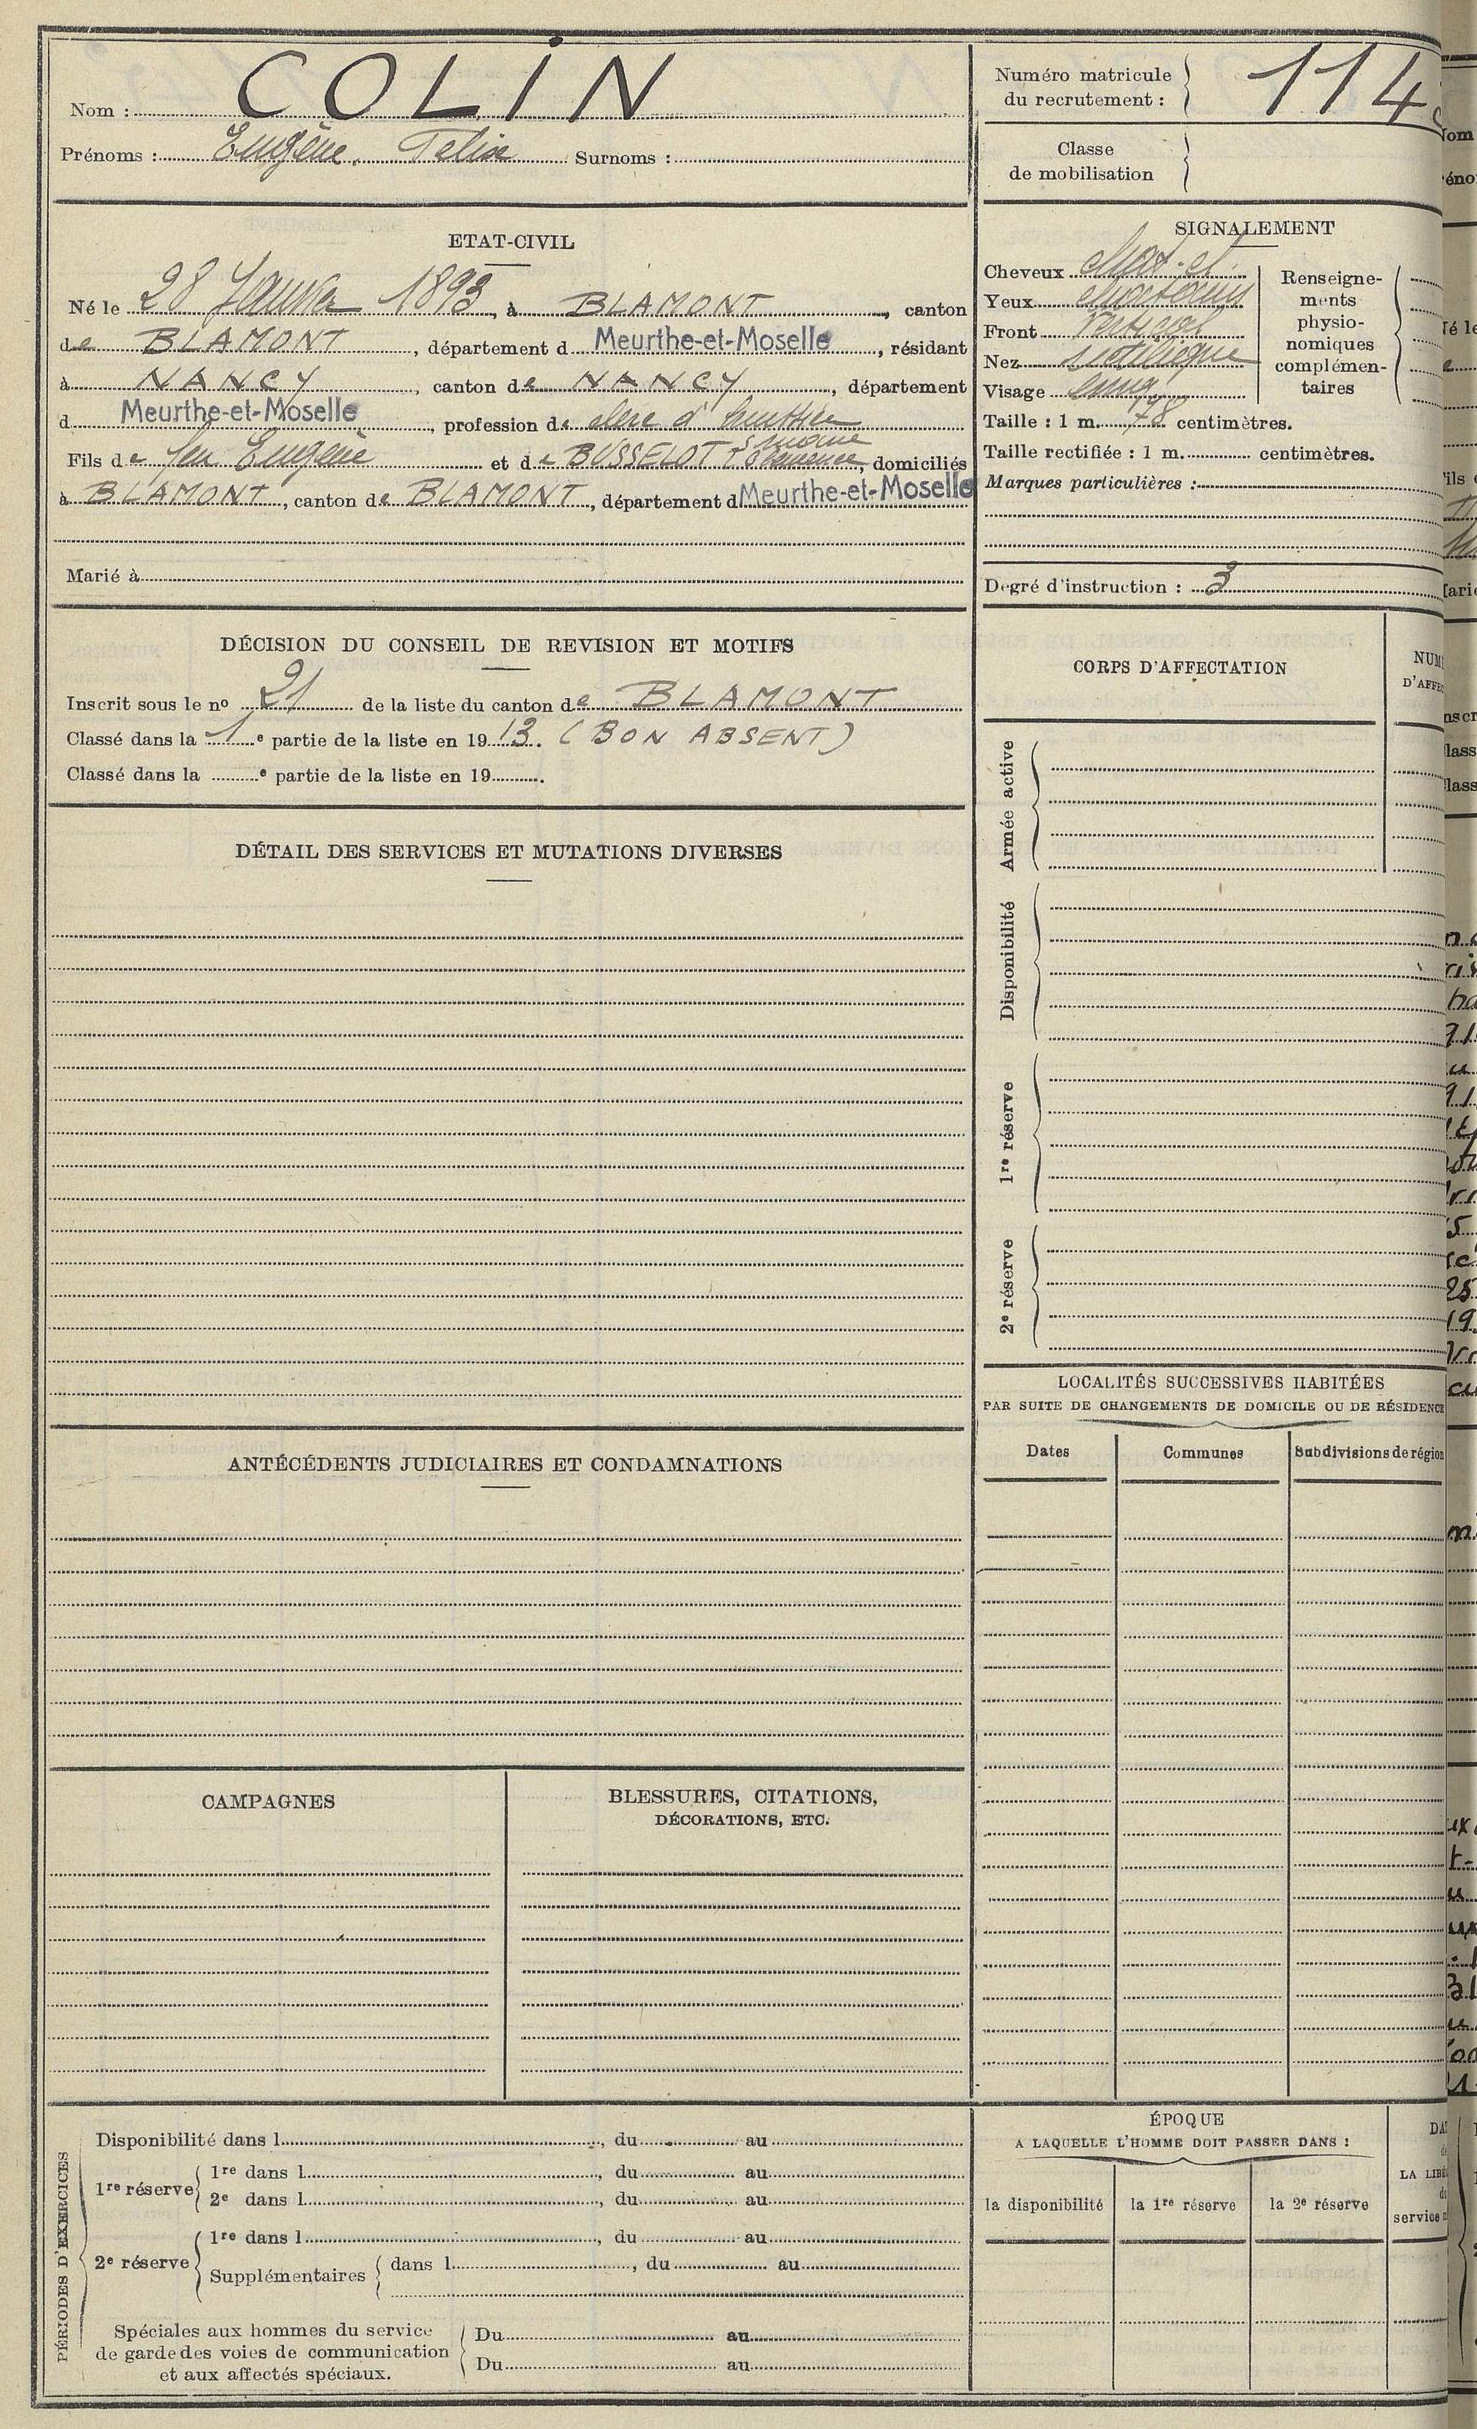 Nom : COLIN
Prénoms : Eugène. Felix Surnoms :
ETAT-CIVIL
Né le 28 Janvier 1893, à BLAMONT, canton
de BLAMONT, département d Meurthe-et-Moselle, résidant
à NANCY, canton de NANCY, département
d Meurthe-et-Moselle, profession de clerc d'huissier
Fils de feu Eugène et de BUSSELOT, domiciliés
à BLAMONT, canton de BLAMONT, département d Meurthe-et-Moselle
Marié à
DÉCISION DU CONSEIL DE REVISION ET MOTIFS
Inscrit sous le nº 21 de la liste du canton de BLAMONT
Classé dans la 1e partie de la liste en 1913. (BON ABSENT)
Classé dans la e partie de la liste en 19 .
DÉTAIL DES SERVICES ET MUTATIONS DIVERSES
ANTÉCÉDENTS JUDICIAIRES ET CONDAMNATIONS
CAMPAGNES
BLESSURES, CITATIONS,
DÉCORATIONS, ETC.
PÉRIODES D'EXERCICES
Disponibilité dans l , du au
1re réserve
1re dans l , du au
2e dans l , du au
2e réserve
1re dans l , du au
Supplémentaires dans l , du au
Spéciales aux hommes du service
de garde des voies de communication
et aux affectés spéciaux.
Du au
Du au
Numéro matricule
du recrutement :
114
Classe
de mobilisation
SIGNALEMENT
Cheveux
Yeux
Front Vertical
Nez
Visage long
Renseigne-
ments
physio-
nomiques
complémen-
taires
Taille : 1 m. 78 centimètres.
Taille rectifiée : 1 m. centimètres.
Marques particulières :
Degré d'instruction : 3
CORPS D'AFFECTATION
NUM
D'AFFEC
Armée active
Disponibilité
1re réserve
2e réserve
LOCALITÉS SUCCESSIVES HABITÉES
PAR SUITE DE CHANGEMENTS DE DOMICILE OU DE RÉSIDENCE
Dates
Communes
Subdivisions de région
ÉPOQUE
A LAQUELLE L'HOMME DOIT PASSER DANS :
la disponibilité
la 1re réserve
la 2e réserve
DA
LA LIBÉ
service